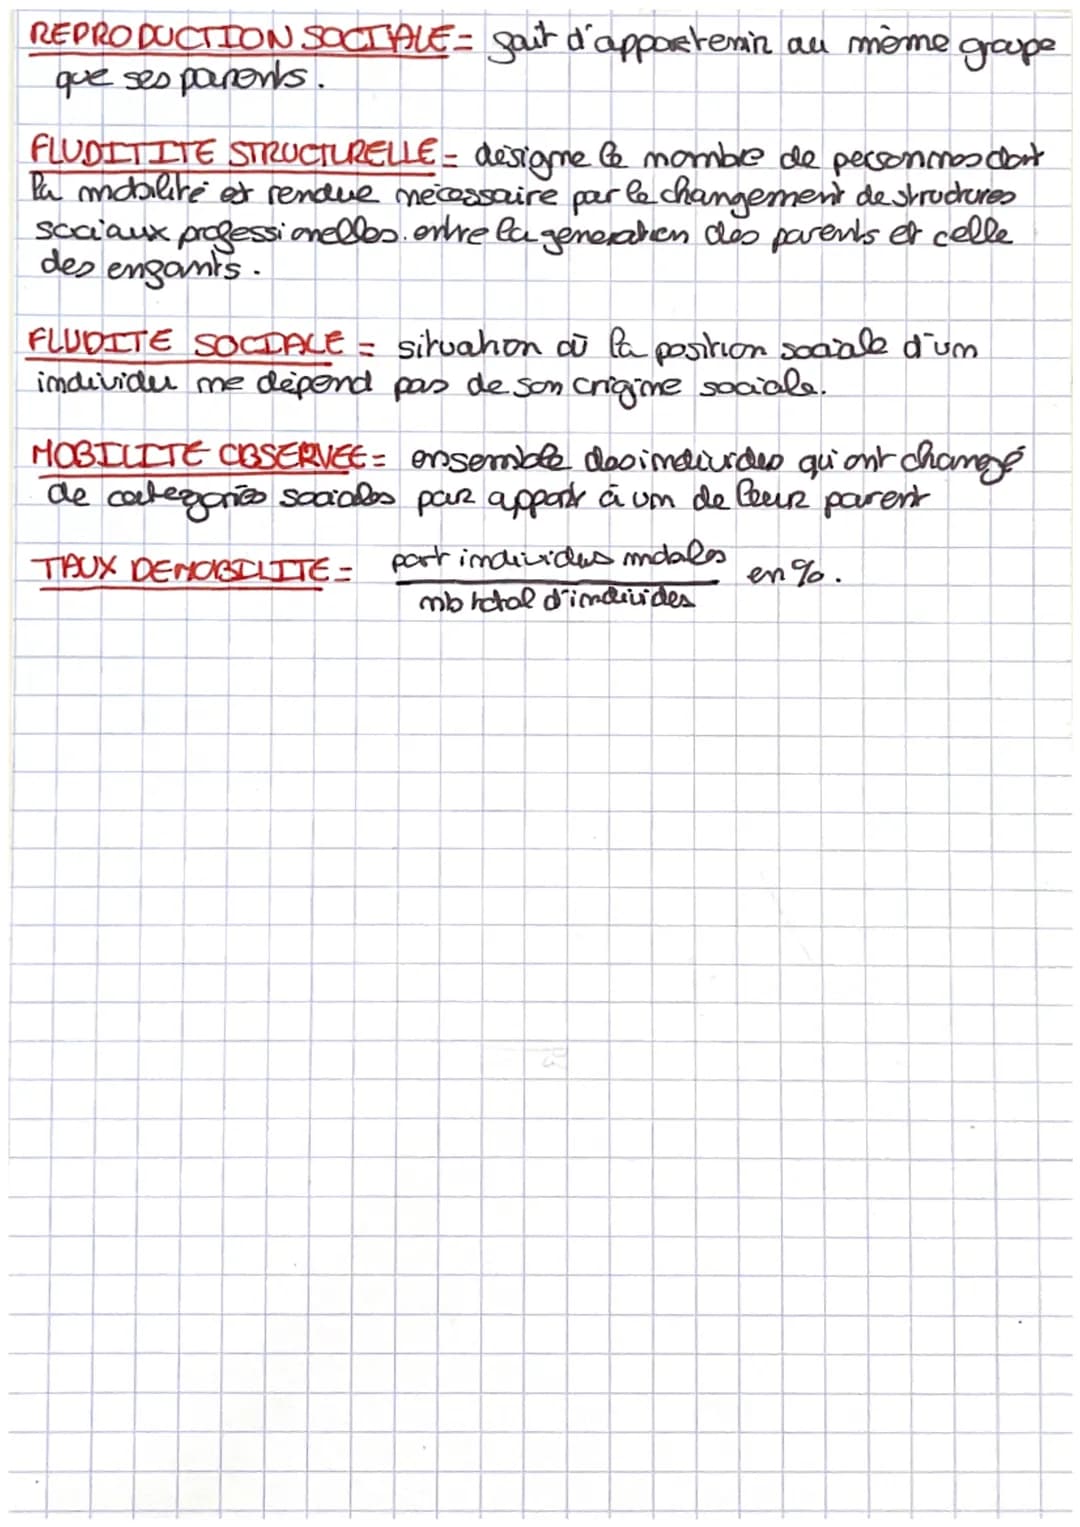 REPRODUCTION SOCIALE = fait d'appartenir au même groupe
que ses parents.
FLUDITITE STRUCTURELLE = désigne le nombre de personnes dont
la mobilité et rendue nécessaire par le changement de structures
sociaux professionelles. entre la génération des parents et celle
des enfants.
FLUDITE SOCIALE = situation où la position sociale d'un
individu ne dépend pas de son origine sociale.
MOBILITE OBSERVEE = ensemble des individus qui ont changé
de catégories sociales par apport à un de leur parent
TAUX DE MOBILITE = part individus mobiles en %.
nb total d'individes